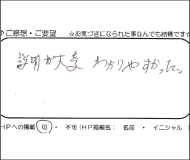 ご感想・ご要望 ☆お気づきになられた事なんでも結構です☆
説明が大変 わかりやすかったっ
HPへの掲載 可・ 不可（HP掲載名： 名前 ・ イニシャル